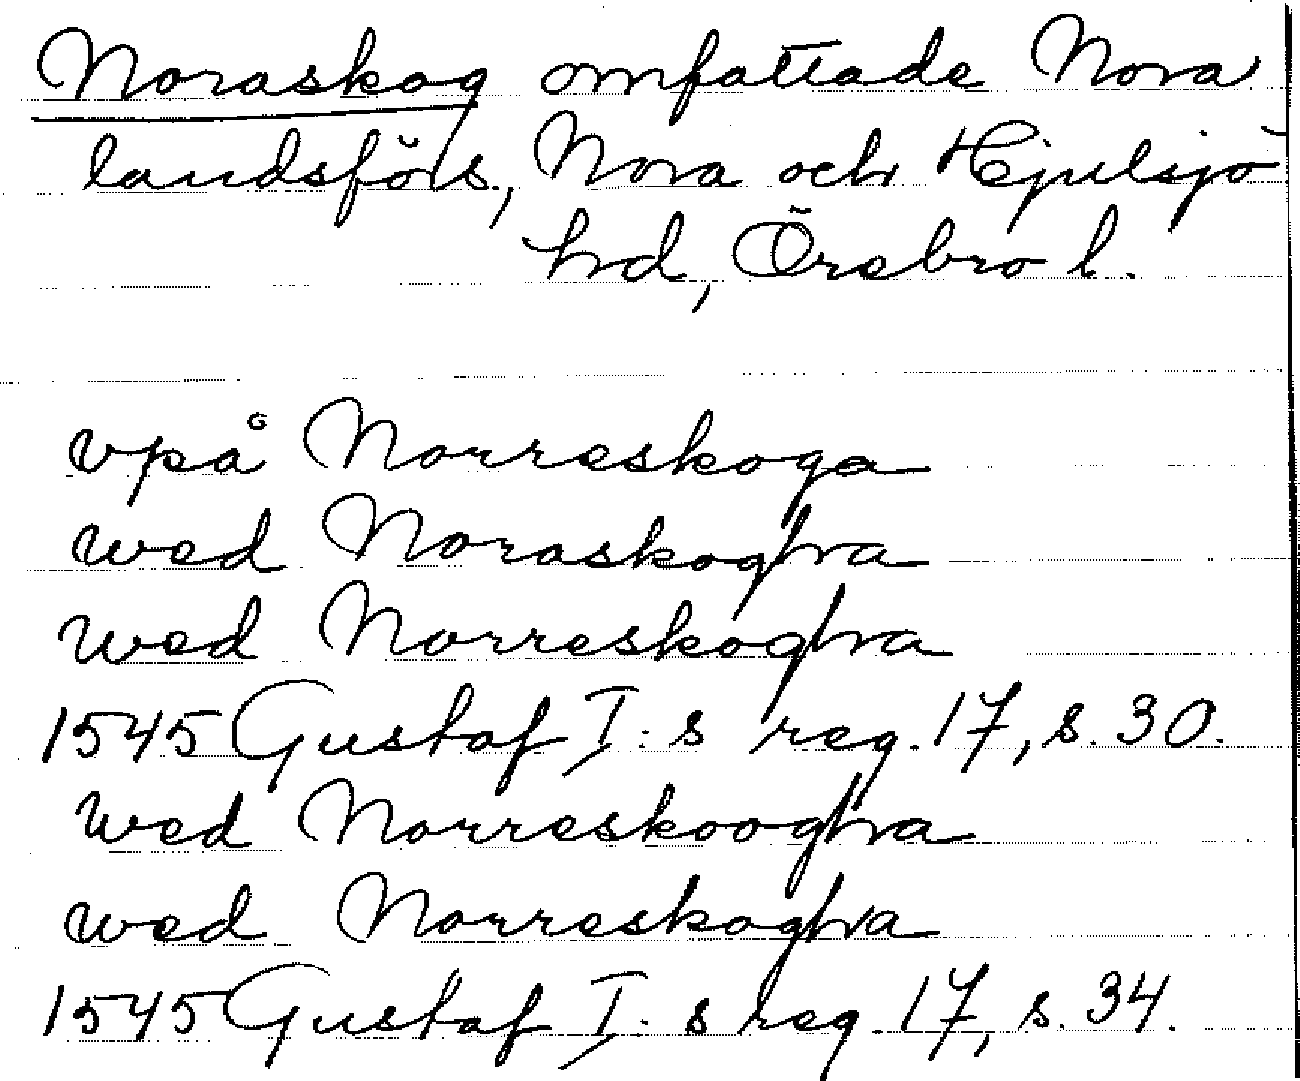 Noraskog omfattade Nora
landsförs., Nora och Hjulsjö
hd, Örebro l.
vpå Norreskoga
wed Noraskogha
wed Norreskogha
1545 Gustaf I:s reg. 17, s. 30.
wed Norreskoogha
wed Norreskogha
1545 Gustaf I:s reg. 17, s. 34.